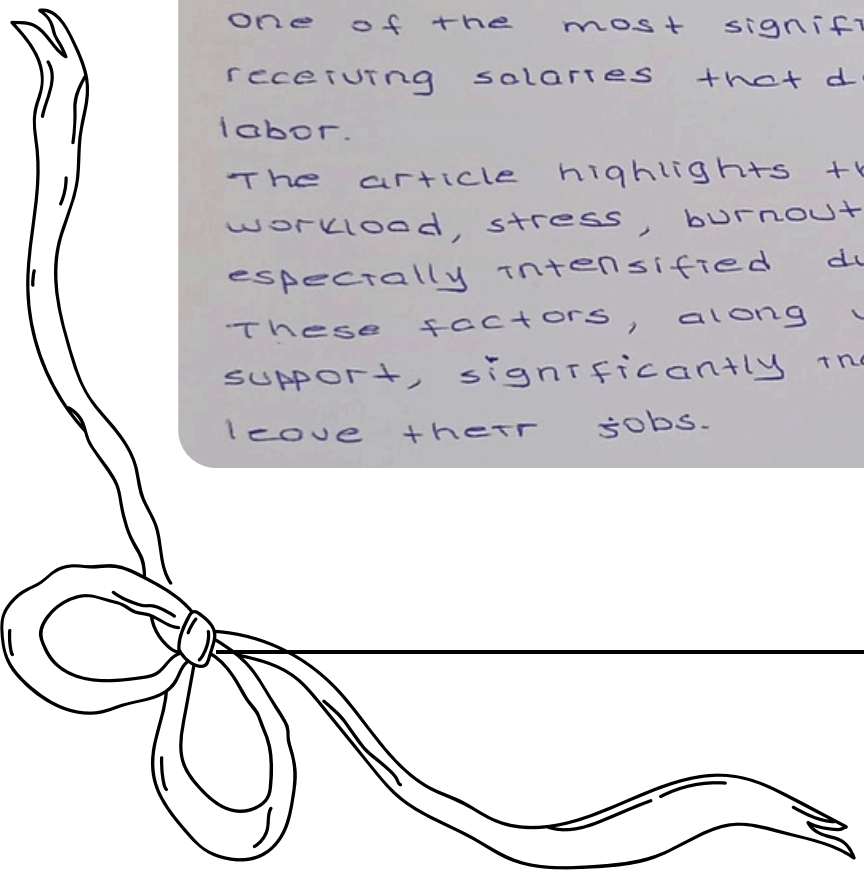 one of the most
receiving salaries that
labor.
The article highlights
workload, stress, burnout
especially intensified
These factors, along
support, significantly
leave their jobs.